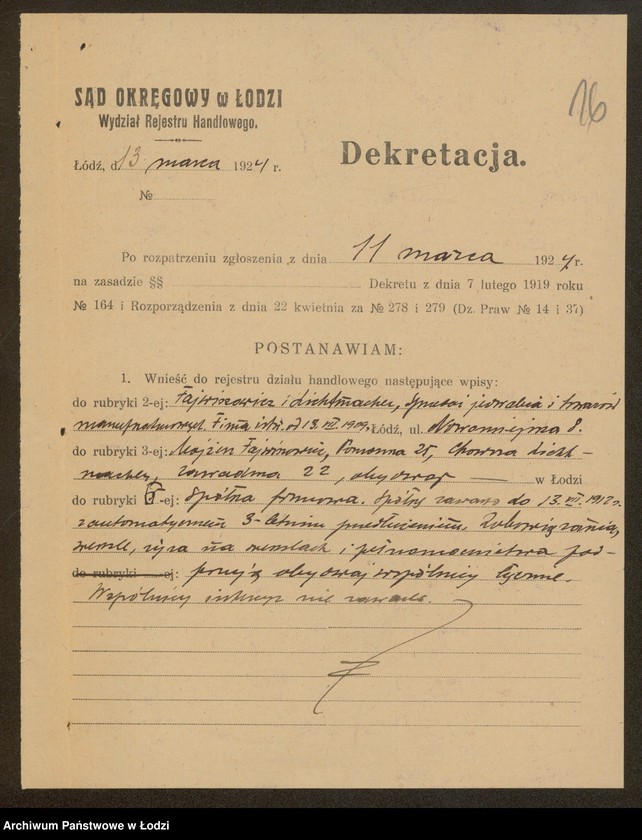 16
SĄD OKRĘGOWY w ŁODZI
Wydział Rejestru Handlowego.
Dekretacja.
Łódź, d. 13 marca 1924 r.
№
Po rozpatrzeniu zgłoszenia z dnia 11 marca 1924 r.
na zasadzie §§ Dekretu z dnia 7 lutego 1919 roku
№ 164 i Rozporządzenia z dnia 22 kwietnia za № 278 i 279 (Dz. Praw № 14 i 37)
POSTANAWIAM:
1. Wnieść do rejestru działu handlowego następujące wpisy:
do rubryki 2-ej: Fajwiszewicz i Lichtmacher, jedwabia i towarów
manufakturowych. Firma istn. od 13.VII.1919, Łódź, ul. Nowomiejska 8.
do rubryki 3-ej: Fajwiszewicz, Pomorna 25, Licht-
macher, Zawadzka 22, obydwaj — w Łodzi
do rubryki 6-ej: Spółka firmowa. zawarta do 13.VII.
z automatycznem 3-letniem przedłużeniem. Zobowiązania,
weksle, żyra na wekslach i pełnomocnictwa pod-
do rubryki -ej: pisują obydwaj wspólnicy łącznie.
Wspólnicy intercyz nie zawarli.
Archiwum Państwowe w Łodzi